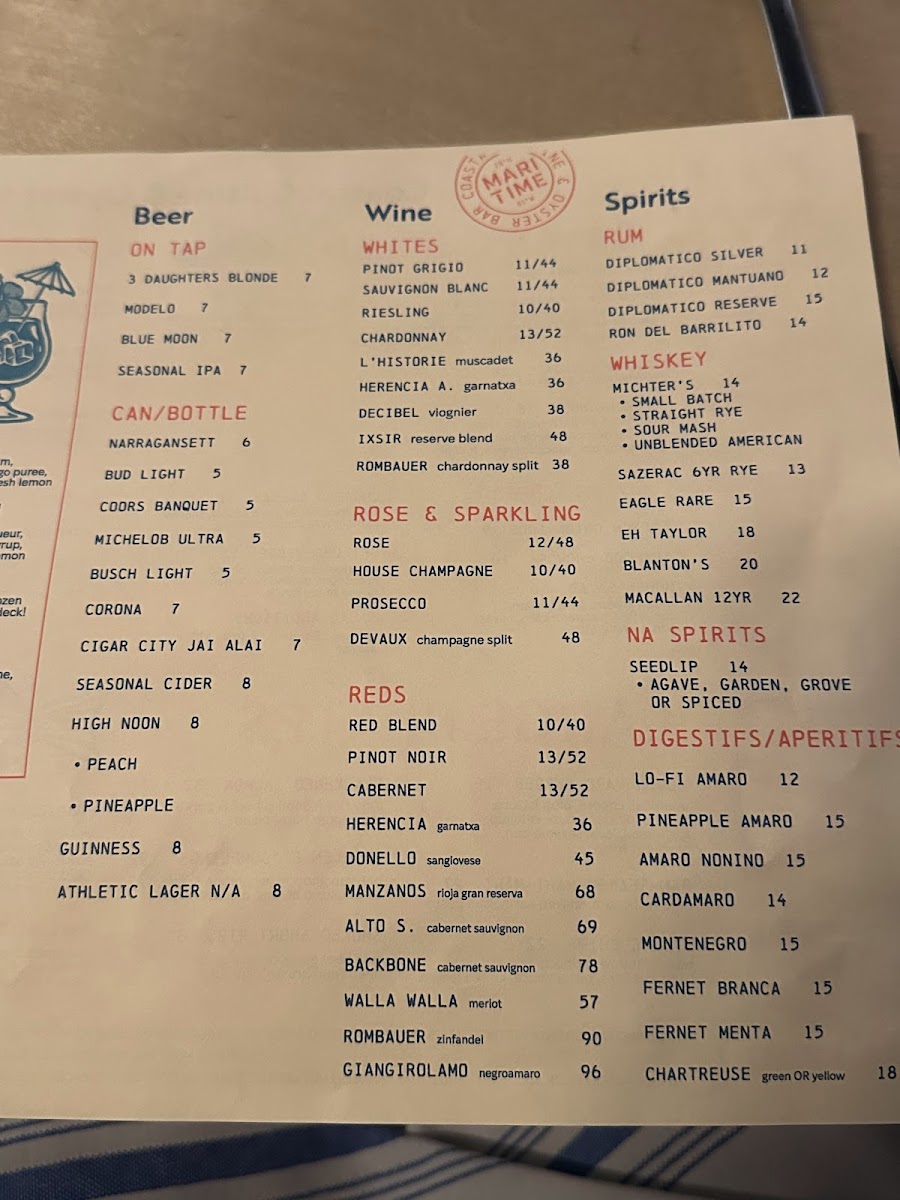 m,
go puree,
esh lemon
ueur,
rup,
mon
ozen
deck!
ne,
Beer
ON TAP
3 DAUGHTERS BLONDE 7
MODELO 7
BLUE MOON 7
SEASONAL IPA 7
CAN/BOTTLE
NARRAGANSETT 6
BUD LIGHT 5
COORS BANQUET 5
MICHELOB ULTRA 5
BUSCH LIGHT 5
CORONA 7
CIGAR CITY JAI ALAI 7
SEASONAL CIDER 8
HIGH NOON 8
• PEACH
• PINEAPPLE
GUINNESS 8
ATHLETIC LAGER N/A 8
MARI
TIME
& OYSTER BAR
Wine
WHITES
PINOT GRIGIO 11/44
SAUVIGNON BLANC 11/44
RIESLING 10/40
CHARDONNAY 13/52
L'HISTORIE muscadet 36
HERENCIA A. garnatxa 36
DECIBEL viognier 38
IXSIR reserve blend 48
ROMBAUER chardonnay split 38
ROSE & SPARKLING
ROSE 12/48
HOUSE CHAMPAGNE 10/40
PROSECCO 11/44
DEVAUX champagne split 48
REDS
RED BLEND 10/40
PINOT NOIR 13/52
CABERNET 13/52
HERENCIA garnatxa 36
DONELLO sangiovese 45
MANZANOS rioja gran reserva 68
ALTO S. cabernet sauvignon 69
BACKBONE cabernet sauvignon 78
WALLA WALLA merlot 57
ROMBAUER zinfandel 90
GIANGIROLAMO negroamaro 96
Spirits
RUM
DIPLOMATICO SILVER 11
DIPLOMATICO MANTUANO 12
DIPLOMATICO RESERVE 15
RON DEL BARRILITO 14
WHISKEY
MICHTER'S 14
• SMALL BATCH
• STRAIGHT RYE
• SOUR MASH
• UNBLENDED AMERICAN
SAZERAC 6YR RYE 13
EAGLE RARE 15
EH TAYLOR 18
BLANTON'S 20
MACALLAN 12YR 22
NA SPIRITS
SEEDLIP 14
• AGAVE, GARDEN, GROVE
OR SPICED
DIGESTIFS/APERITIFS
LO-FI AMARO 12
PINEAPPLE AMARO 15
AMARO NONINO 15
CARDAMARO 14
MONTENEGRO 15
FERNET BRANCA 15
FERNET MENTA 15
CHARTREUSE green OR yellow 18